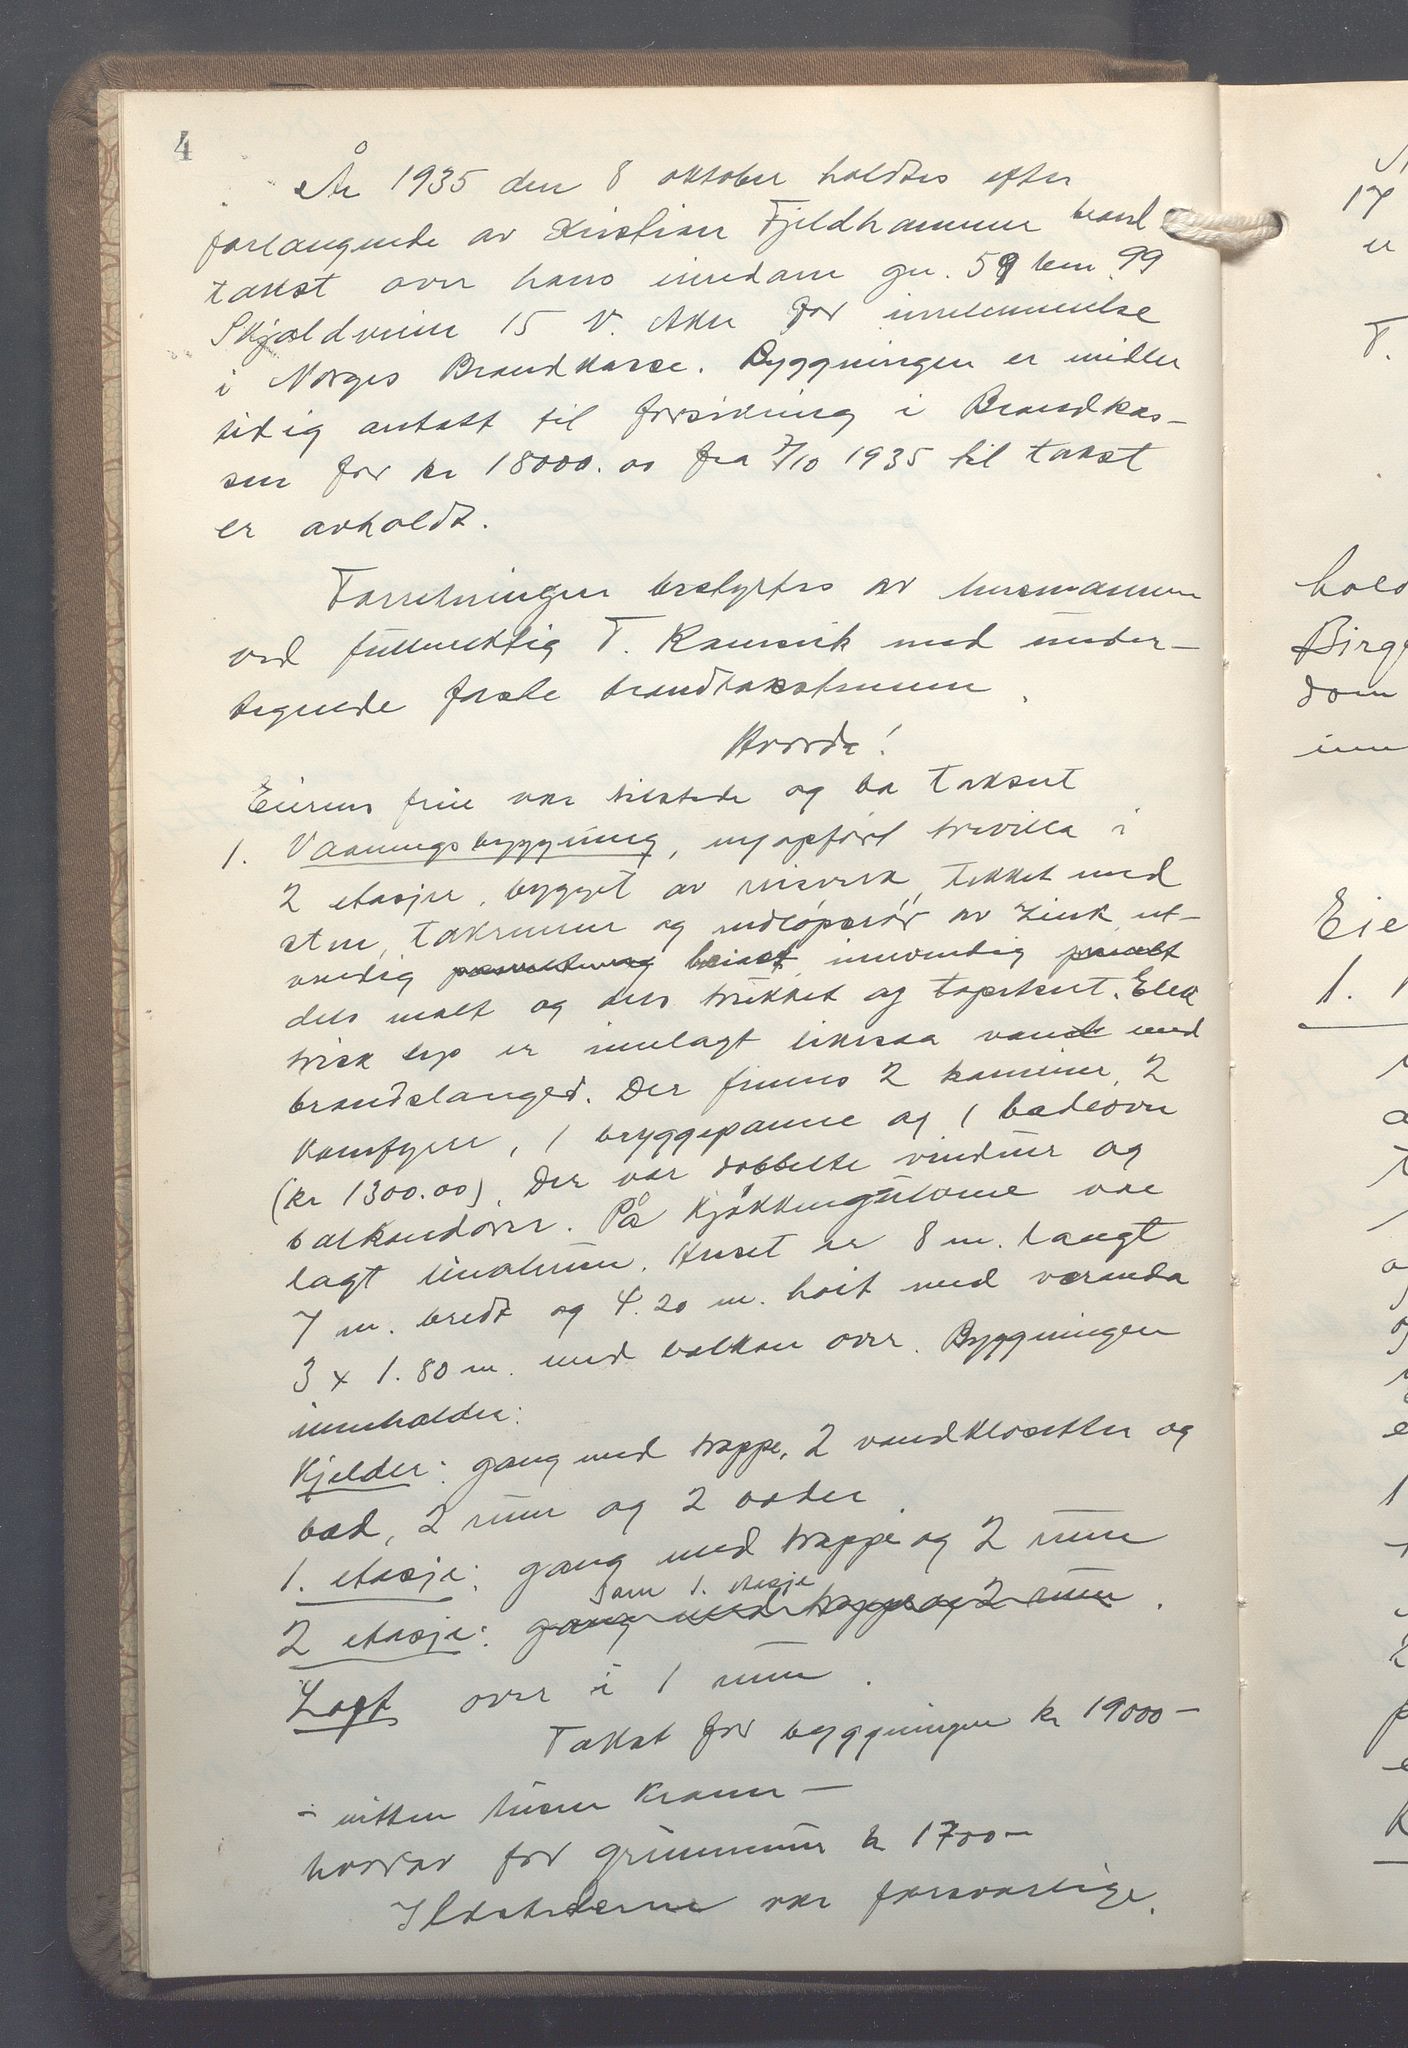 4
År 1935 den 8 oktober holdtes efter
forlangende av Kristian Fjeldhammer brand
takst over hans eiendom gn. 59 bn. 99
Skjoldveien 15 V. Aker for innlemmelse
i Norges Brandkasse. Byggningen er midler
tidig antatt til forsikring i Brandkas-
sen for kr 18000.00 fra 7/10 1935 til takst
er avholdt.
Forretningen bestyrtes av lensmannen
ved fullmektig T. Ramsvik med under-
tegnede faste brandtakstmenn.
Hvorda!
Eierens frue var tilstede og ba taksert
1. Vaaningsbyggning, nyopført trevilla i
2 etasjer, bygget av reisverk, tekket med
sten, takrenner og nedløpsrør av Zink, ut-
vendig beiset, innvendig
dels malt og dels trukket og tapetsert. Elek
trisk lys er innlagt likesaa vand med
brandslanged. Der finnes 2 kaminer, 2
komfyrer, 1 bryggepanne og 1 badeovn
(kr 1300.00). Der var dobbelte vinduer og
balkondører. På kjøkkengulvene var
lagt linoleum. Huset er 8 m. langt
7 m. bredt og 4.20 m. høit med veranda
3 x 1.80 m. med balkon over. Byggningen
inneholder:
Kjelder: gang med trappe, 2 vandklosetter og
bad, 2 rum og 2 boder.
1. etasje: gang med trappe og 2 rum
som 1. etasje
2 etasje: gang med trappe og 2 rum.
Loft over i 1 rum.
Takst for byggningen kr 19000-
- nitten tusen kroner -
hvorav for grunnmur kr 1700-
Ildstederne var forsvarlige.
17
er
T.
hold
Birg
dom
inn
Eie
1.